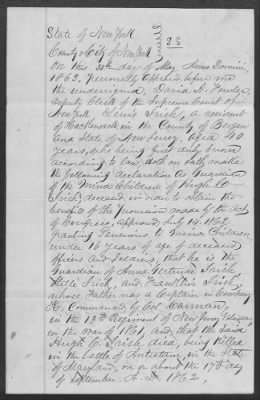 State of New York
County & City of New York } SS
On this 30th day of May Anno Domini,
1863, Personally appeared before me
the undersigned, David A. Fowler,
Deputy Clerk of the Supreme Court of
New York Lewis Irish, a resident
of Hackensack in the County of Bergen
and State of New Jersey aged 40
years, who being first duly sworn
according to law, doth on oath, make
the following declaration as Guardian
of the minor Children of Hugh C.
Irish, deceased, in order to obtain the
benefit of the provision made by the act
of Congress, approved July 14 1862,
granting Pensions to minor Children,
under 16 years of age of deceased
officers and Soldiers, that he is the
Guardian of Anna Gertrude Irish
Irish, and Franklin Irish,
whose Father was a Captain in Company
K, Commanded by Col Carman,
in the 13th Regiment of New Jersey Volunteers
in the war of 1861, and, that the said
Hugh C. Irish died, being killed
in the battle of Antietam, in the State
of Maryland, on or about the 17th day
of September A.D. 1862,